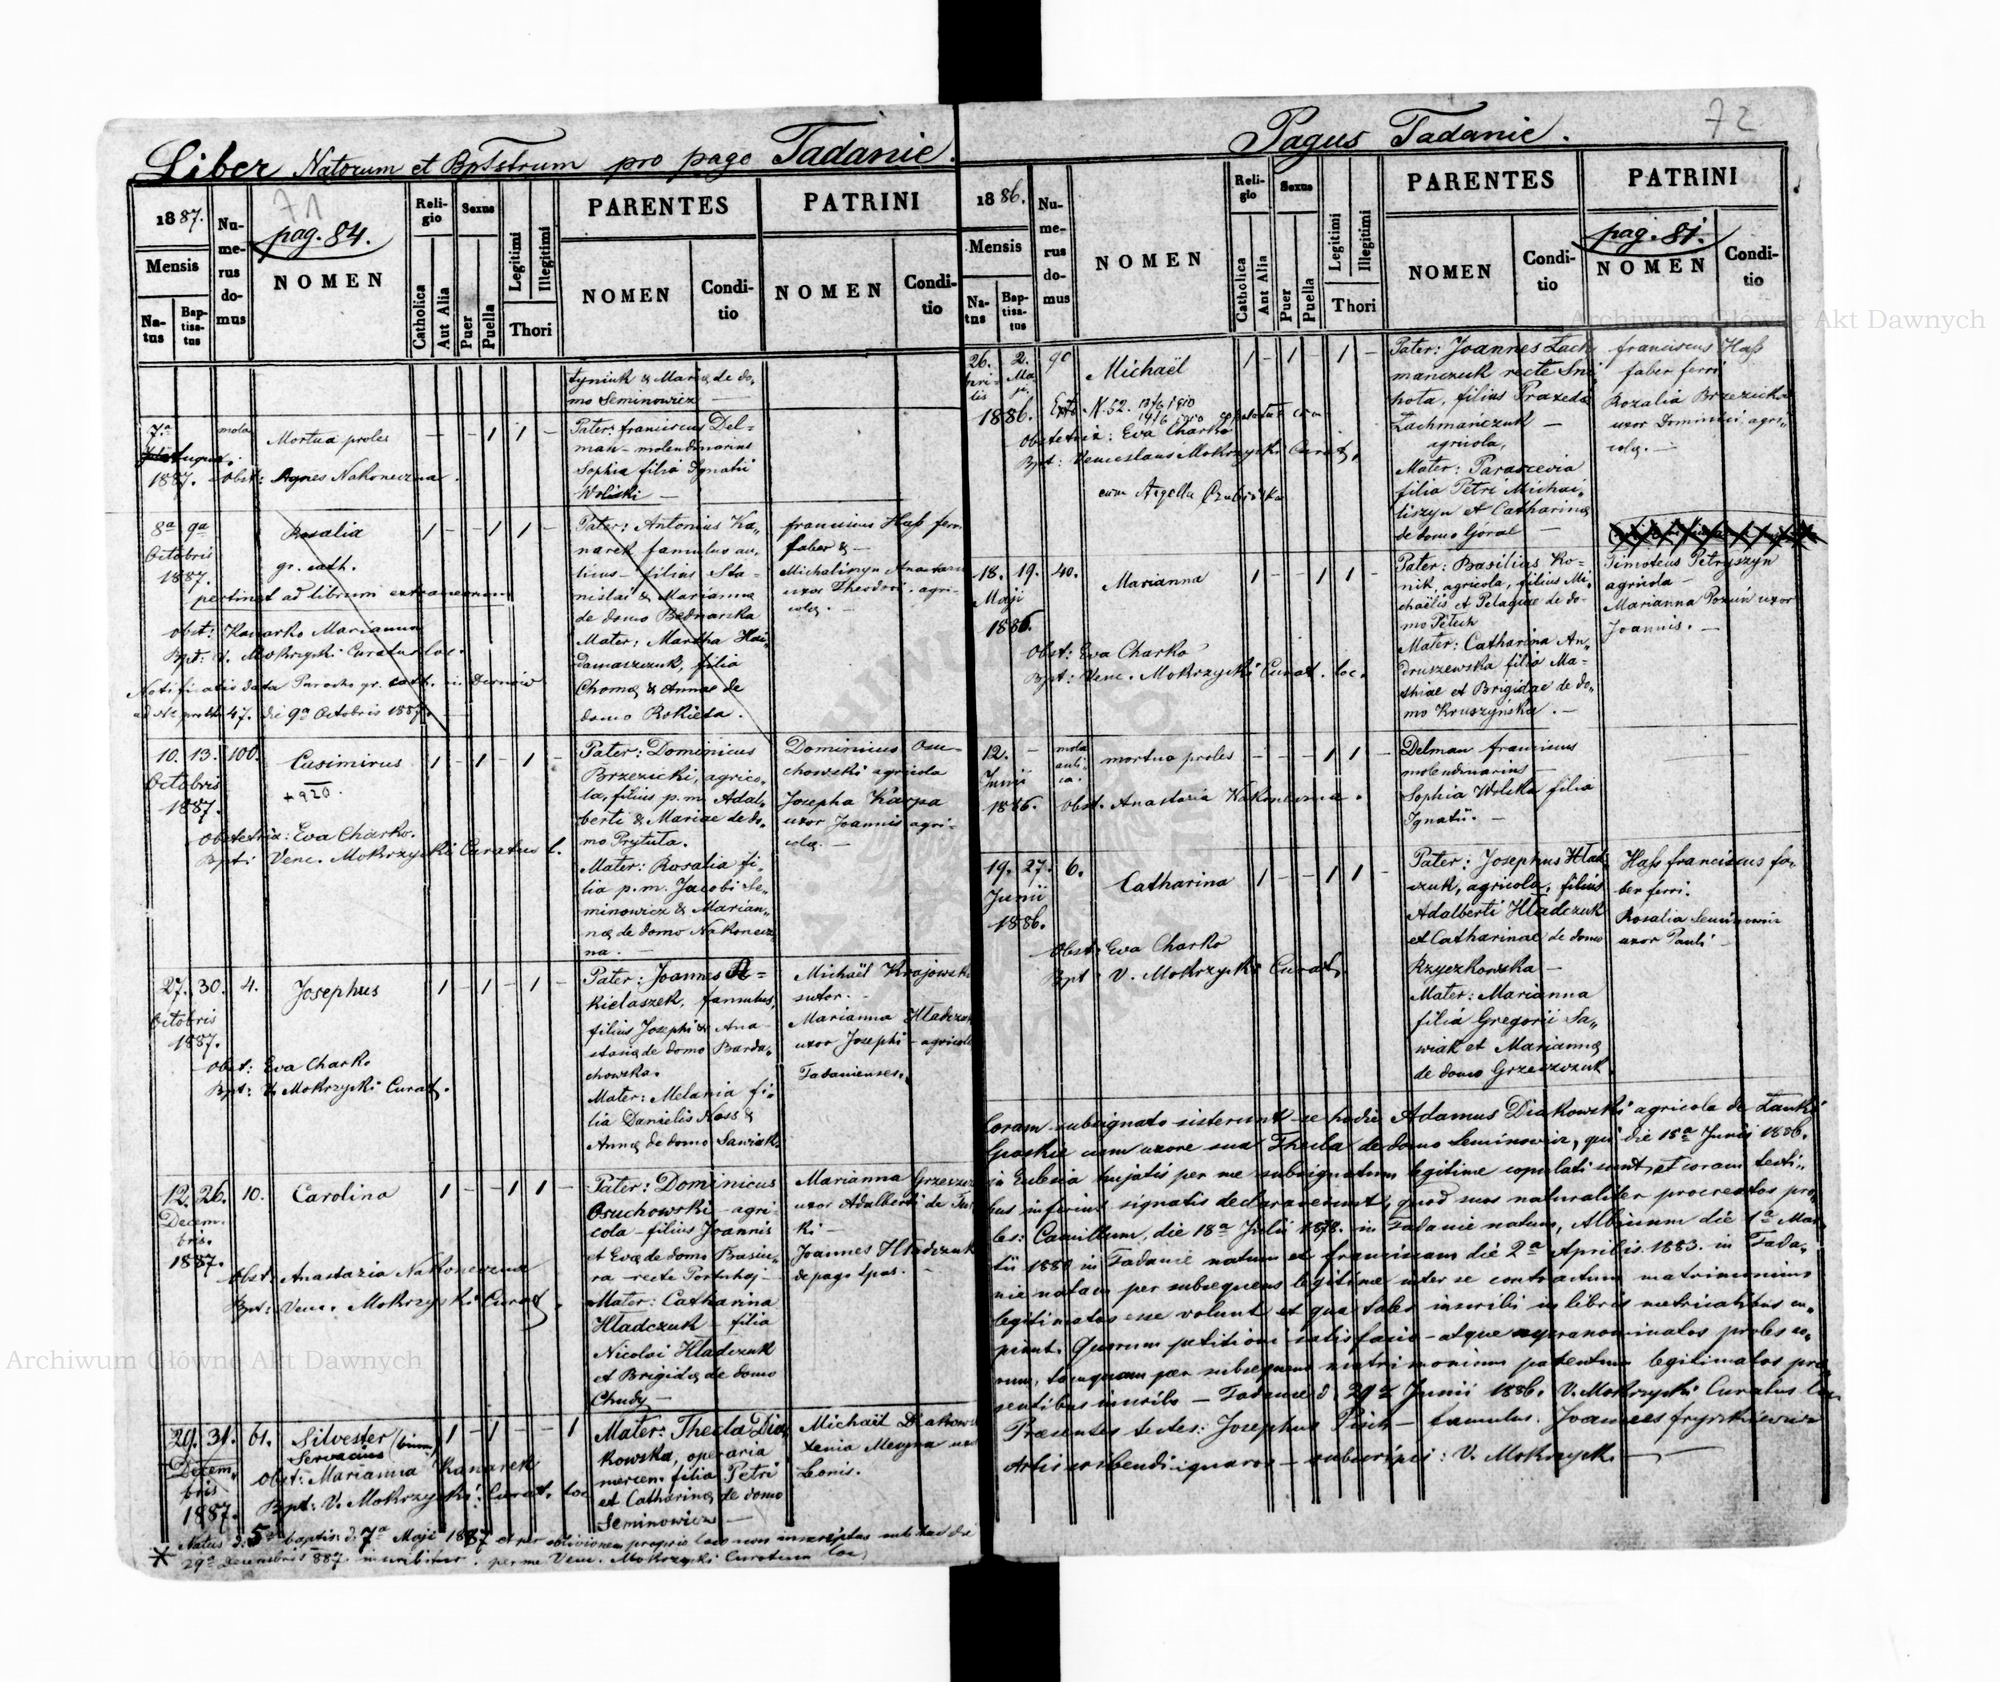 Liber Natorum et Bptstrum pro pago Tadanie.
1887.
Numerus domus
71
pag. 84.
NOMEN
Religio
Sexus
PARENTES
PATRINI
Mensis
Natus
Baptisatus
Catholica
Aut Alia
Puer
Puella
Legitimi
Illegitimi
Thori
NOMEN
Conditio
NOMEN
Conditio
tyniuk & Mariae de do„
mo Seminowicz —
7a
Augusti
1887.
mola
Mortua proles
Obst: Agnes Nakoneczna.
Pater: franciscus Del=
man - molendinarius
Sophia filia Ignatii
Wolicki —
8a 9a
Octobris
1887.
Rosalia
gr. cath.
pertinet ad librum extraneorum
Obst: Kanarko Marianna
Bpt: V. Mokrzycki Curatus loc.
Notificatio data Parocho gr. cath. in Dernów
ad Nr. proth 47. die 9a Octobris 1887.
Pater: Antonius Ka„
narek famulus au„
licus - filius Sta=
nislai & Marianna
de domo Bednarska
Mater: Martha Hai„
damaszczuk, filia
Choma & Annae de
domo Rokieta.
franciscus Hass ferri
faber & —
Michalinyn Anastasia
uxor Theodori, agri-
colae. —
10. 13.
Octobris
1887.
100.
Casimirus
+ 920.
Obstetrix: Eva Charko.
Bpt: Venc. Mokrzycki Curatus l.
Pater: Dominicus
Brzezicki, agrico„
la, filius p.m. Adal„
berti & Mariae de do„
mo Prytula.
Mater: Rosalia fi„
lia p.m. Jacobi Se„
minowicz & Marian„
na de domo Nakonecz
na. —
Dominicus Osu-
chowski agricola
Josepha Karpa
uxor Joannis agri-
colae. —
27. 30.
Octobris
1887.
4.
Josephus
Obst: Eva Charko
Bpt: V. Mokrzycki Curat.
Pater: Joannes
Kielaszek, famulus,
filius Josephi & Ana-
stasia de domo Barda„
chowska.
Mater: Melania fi„
lia Danielis Koss &
Anna de domo Sawiak
Michaël Krajowski
sutor. -
Marianna Hladczuk
uxor Josephi - agricola
Tadanienses.
12. 26.
Decem-
bris.
1887.
10.
Carolina
Obst: Anastazia Nakoneczna
Bpt: Venc. Mokrzycki Curat.
Pater: Dominicus
Osuchowski - agri-
cola - filius Joannis
et Eva de domo
ra - recte
Mater: Catharina
Hladczuk - filia
Nicolai Hladczuk
et Brigida de domo
Chudy —
Marianna
uxor Adalberti de
ki —
Joannes Hladczuk
de pago Spas. -
29. 31.
Decem„
bris
1887.
61.
Silvester
Servacius
Obst: Marianna Kanarek
Bpt: V. Mokrzycki Curat. loc
Mater: Thecla Dia„
kowska, operaria
mercen. filia Petri
et Catharina de domo
Seminowicz —
Michaël Diakowski
Xenia
Leonis.
* Natus d. 5 baptis: d. 7a Maji 1887 et per oblivionem proprio loco non inscriptus sub hac die
29a Decembris 887. inscribitur. per me Venc. Mokrzycki Curatum loc.
72
Pagus Tadanie.
1886.
Numerus domus
NOMEN
Religio
Sexus
PARENTES
PATRINI
pag. 81.
Mensis
Natus
Baptisatus
Catholica
Aut Alia
Puer
Puella
Legitimi
Illegitimi
Thori
NOMEN
Conditio
NOMEN
Conditio
26. 2.
Maji
1886.
90
Michaël
N. 52. 13/6 1910
14/6 1910 copulatus cum
Obstetrix: Eva Charko
Bpt: Venceslaus Mokrzycki Curat.
cum
Pater: Joannes Lach
manczuk recte
hota, filius Praxeda
Lachmańczuk —
agricola,
Mater: Parascevia
filia Petri Michai„
liszyn et Catharina
de domo Góral —
franciscus Hass
faber ferri
Rozalia Brzezicka
uxor Dominici agri„
colae. —
18. 19.
Maji
1886.
40.
Marianna
Obst: Eva Charko
Bpt: Venc. Mokrzycki Curat. loc.
Pater: Basilius Ko„
nik, agricola, filius Mi„
chaëlis et Pelagiae de do„
mo Petuch
Mater: Catharina An„
druszewska filia Ma„
thiae et Brigidae de do„
mo Kruszyńska. —
Timoteus Petryszyn
agricola -
Marianna uxor
Joannis. —
12. -
Junii
1886.
mola
auli„
ca.
mortua proles
Obst. Anastazia Nakoneczna.
Delman franciscus
molendinarius —
Sophia Wolicka filia
Ignatii. -
19. 27.
Junii
1886.
6.
Catharina
Obst: Eva Charko
Bpt: V. Mokrzycki Curat.
Pater: Josephus Hlad
czuk, agricola, filius
Adalberti Hladczuk
et Catharinae de domo
Rzyczkowska -
Mater: Marianna
filia Gregorii Sa„
wiak et Marianna
de domo Grzeszczuk.
Hass franciscus fa„
ber ferri.
Rosalia Seminowicz
uxor Pauli -
Coram subsignato sisterunt se hodie Adamus Diakowski agricola de Łanki
cum uxore sua Thecla de domo Seminowicz, qui die 15a Junii 1886.
in Eclesia hujatis per me subsignatum legitime copulati sunt, et coram testi„
bus inferius signatis declaraverunt, quod suos naturaliter procreatos pro„
les: Camillum, die 18a Julii 1878. in Tadanie natum, Albinum die 1a Mar„
tii 1880 in Tadanie natum et franciscam die 2a Aprilis 1883. in Tada„
nie natam per subsequens legitime inter se contractum matrimonium
legitimatos esse volunt et qua tales inscribi in libris metricalibus cu„
piunt. Quorum petitioni satisfacio - atque supranominatos proles eo„
rum, tamquam per subsequens matrimonium parentum legitimatos prae„
sentibus inscribo - Tadanie d. 29 Junii 1886. V. Mokrzycki Curatus loc.
Praesentes testes: Josephus Pisch - famulus. Joannes
Artis scribendi ignaros - subscripsi: V. Mokrzycki —
Archiwum Główne Akt Dawnych
Archiwum Główne Akt Dawnych